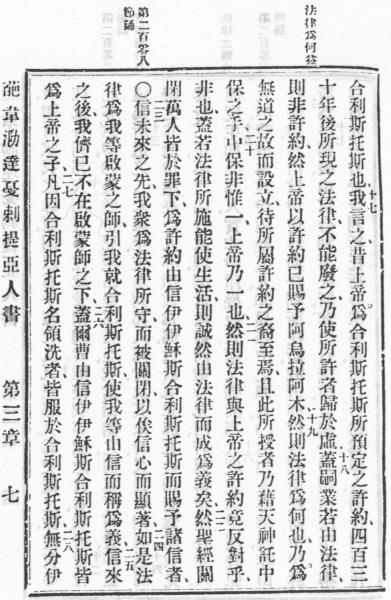 法律爲何益
第二百零八
節誦
合利斯托斯也我言之昔上帝爲合利斯托斯所預定之許約四百三
十七
十年後所現之法律不能廢之乃使所許者歸於虛蓋嗣業若由法律
十八
則非許約然上帝以許約已賜予阿烏拉阿木然則法律爲何也乃爲
十九
無道之故而設立待所屬許約之裔至焉且此所授者乃藉天神託中
保之手中保非惟一上帝乃一也然則法律與上帝之許約竟反對乎
二十
二一
非也蓋若法律所施能使生活則誠然由法律而成爲義矣然聖經關
二二
閉萬人皆於罪下爲許約由信伊伊穌斯合利斯托斯而賜予諸信者
二三
二四
○信未來之先我衆爲法律所守而被關閉以俟信心而顯著如是法
律爲我等啟蒙之師引我就合利斯托斯使我等由信而稱爲義信來
二五
之後我儕已不在啟蒙師之下蓋爾曹由信伊伊穌斯合利斯托斯皆
二六
爲上帝之子凡因合利斯托斯名領洗者皆服於合利斯托斯無分伊
二七
二八
葩韋泐達戛剌提亞人書
第三章
七